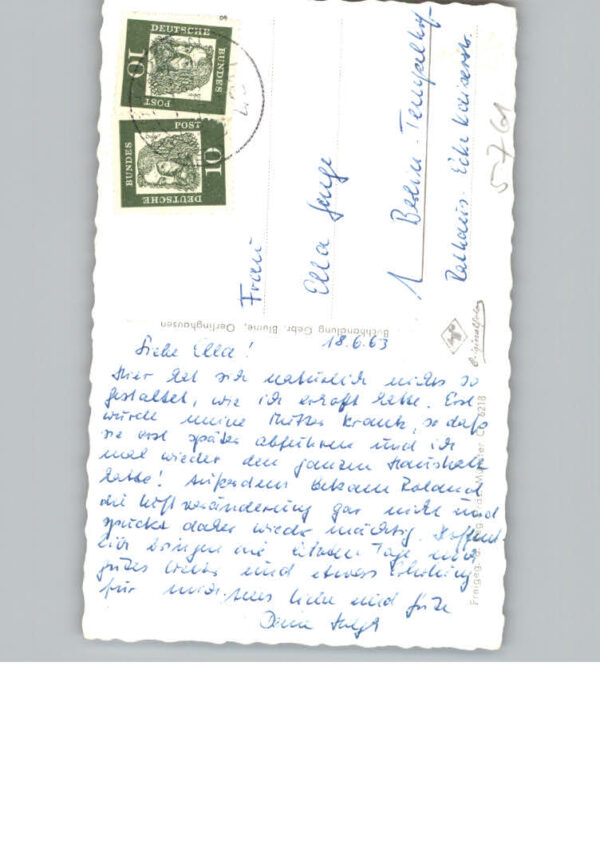 Liebe Ella!
18.6.63
Hier hat sich natürlich nichts so
gestaltet, wie ich erhofft hatte. Erst
wurde meine Mutter krank, so daß
sie erst später abfahren und ich
mal wieder den ganzen Haushalt
hatte! Außerdem bekam Roland
die Luftveränderung gar nicht und
spuckt daher wieder mächtig. Hoffent-
lich bringen die Tage noch
gutes und etwas Erholung
für mich. liebe und gute
Deine
Frau
Ella
1 Berlin-Tempelhof
Rathaus-Ecke Kaiserstr.
5761
DEUTSCHE
BUNDES
POST
10
DEUTSCHE
BUNDES
POST
10
Buchhandlung Gebr. Blume, Oerlinghausen
Originalfoto
Freigeg. Reg. Münster 6218